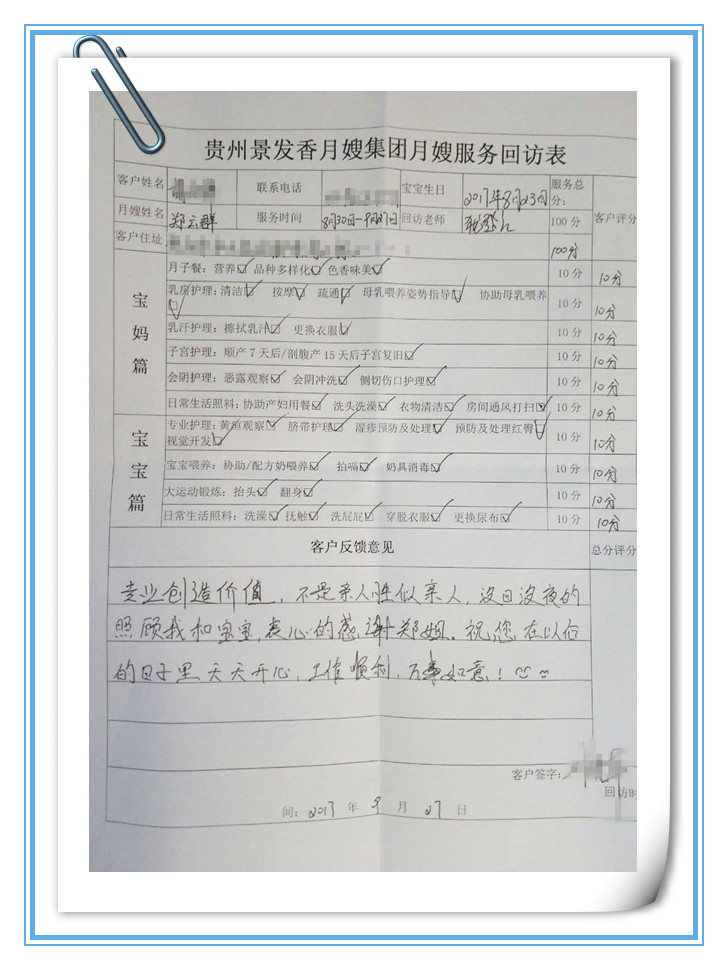 贵州景发香月嫂集团月嫂服务回访表
客户姓名 联系电话 宝宝生日 2017年8月23日 服务总分: 客户评分
月嫂姓名 郑云群 服务时间 8月30日-9月27日 回访老师 100分
客户住址 100分
宝妈篇
月子餐: 营养☑ 品种多样化☑ 色香味美☑ 10分 10分
乳房护理: 清洁☑ 按摩☑ 疏通☑ 母乳喂养姿势指导☑ 协助母乳喂养☑ 10分 10分
乳汁护理: 擦拭乳汁☑ 更换衣服☑ 10分 10分
子宫护理: 顺产7天后/剖腹产15天后子宫复旧☑ 10分 10分
会阴护理: 恶露观察☑ 会阴冲洗☑ 侧切伤口护理☑ 10分 10分
日常生活照料: 协助产妇用餐☑ 洗头洗澡☑ 衣物清洁☑ 房间通风打扫☑ 10分 10分
宝宝篇
专业护理: 黄疸观察☑ 脐带护理☑ 湿疹预防及处理☑ 预防及处理红臀☑
视觉开发☑ 10分 10分
宝宝喂养: 协助/配方奶喂养☑ 拍嗝☑ 奶具消毒☑ 10分 10分
大运动锻炼: 抬头☑ 翻身☑ 10分 10分
日常生活照料: 洗澡☑ 抚触☑ 洗屁屁☑ 穿脱衣服☑ 更换尿布☑ 10分 10分
客户反馈意见 总分评分
专业创造价值，不是亲人胜似亲人，没日没夜的
照顾我和宝宝，衷心的感谢郑姐。祝您在以后
的日子里天天开心，工作顺利，万事如意！
客户签字:
回访时
间: 2017 年 9 月 27 日